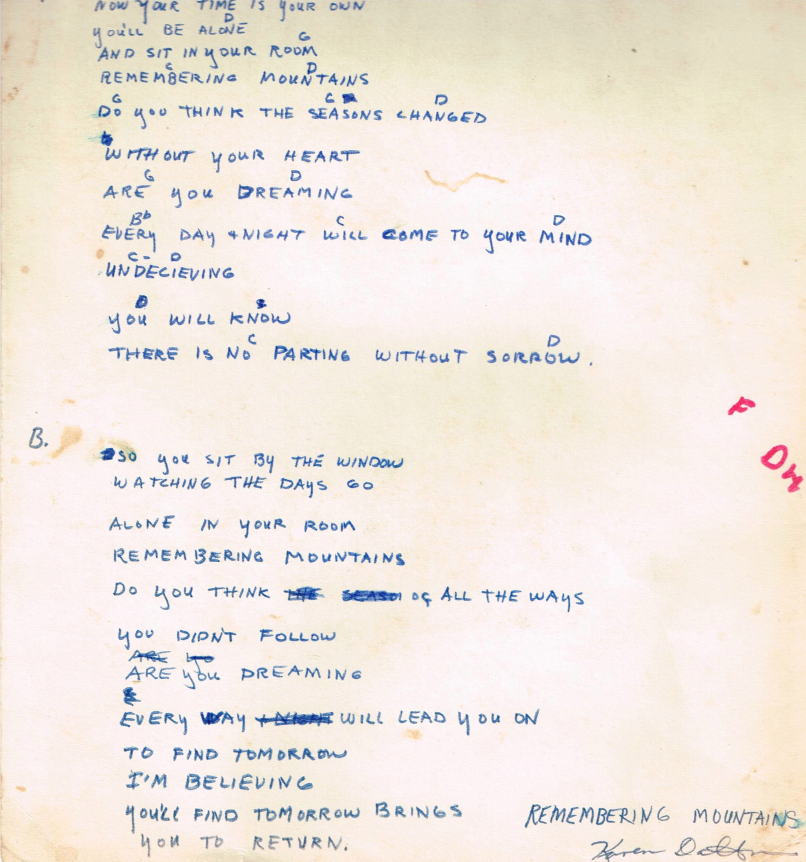 NOW YOUR TIME IS YOUR OWN
D
YOU'LL BE ALONE
G
AND SIT IN YOUR ROOM
C D
REMEMBERING MOUNTAINS
G G D
DO YOU THINK THE SEASONS CHANGED
WITHOUT YOUR HEART
G D
ARE YOU DREAMING
Bb C D
EVERY DAY + NIGHT WILL COME TO YOUR MIND
C- D
UNDECIEVING
D
YOU WILL KNOW
C D
THERE IS NO PARTING WITHOUT SORROW.
F
Dm
B.
SO YOU SIT BY THE WINDOW
WATCHING THE DAYS GO
ALONE IN YOUR ROOM
REMEMBERING MOUNTAINS
DO YOU THINK THE SEASO OF ALL THE WAYS
YOU DIDN'T FOLLOW
ARE YO
ARE YOU DREAMING
EVERY WAY + NIGHT WILL LEAD YOU ON
TO FIND TOMORROW
I'M BELIEVING
YOU'LL FIND TOMORROW BRINGS
YOU TO RETURN.
REMEMBERING MOUNTAINS
Karen Dalton